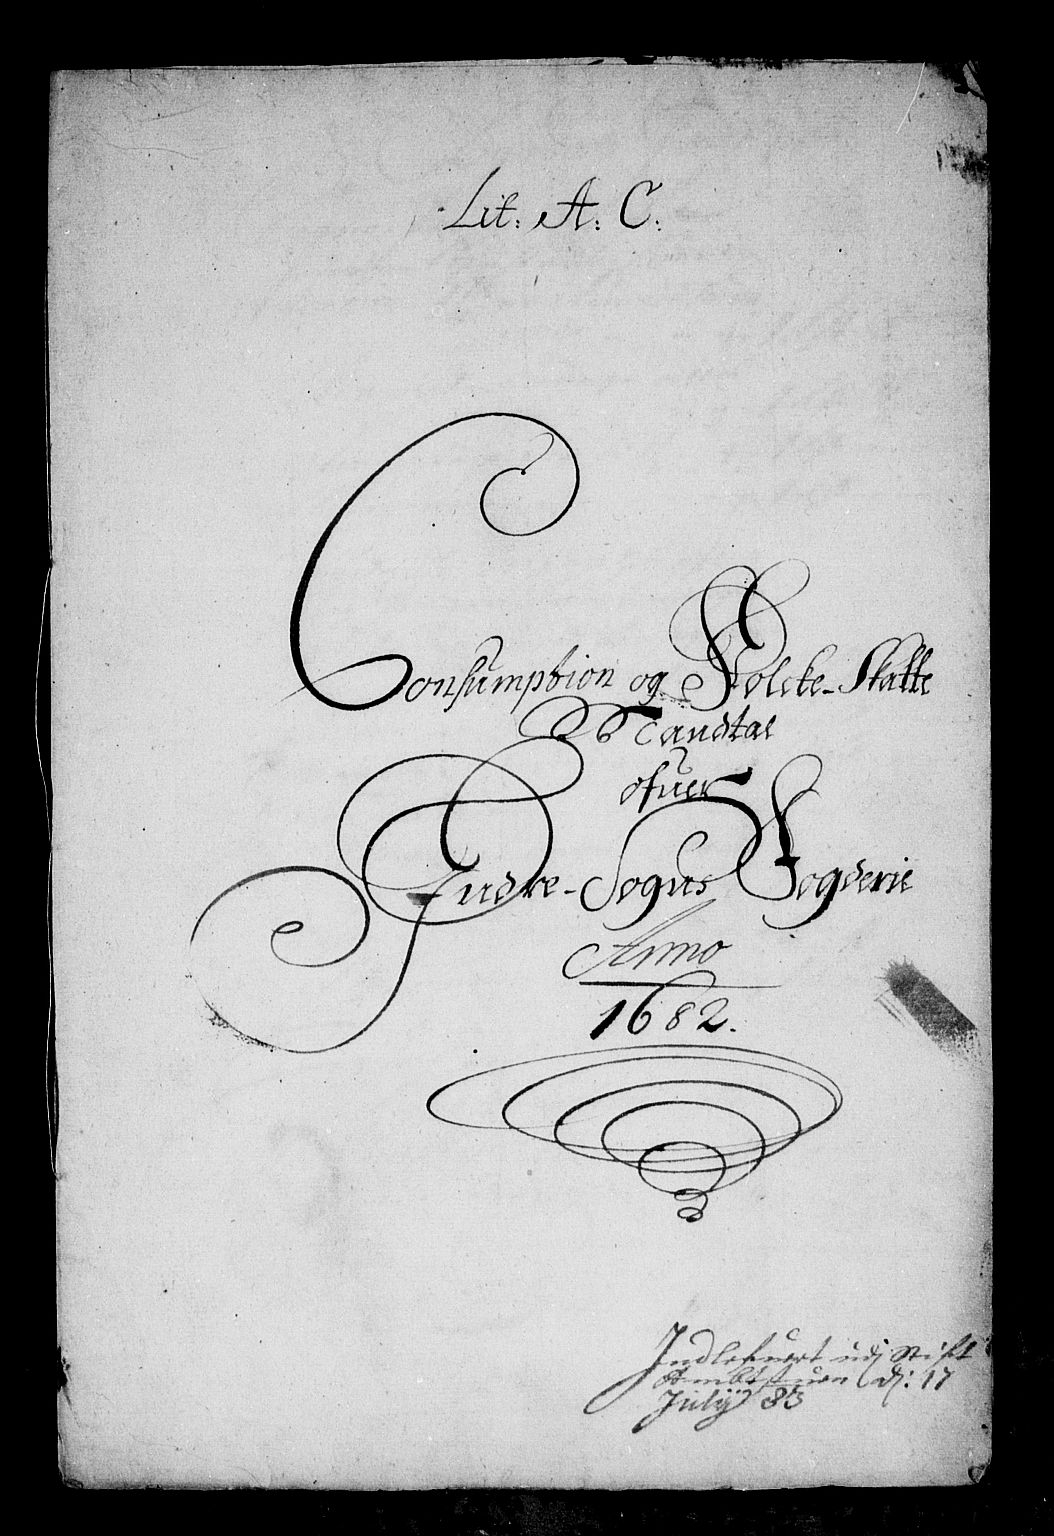 Lit: A: C:
Consumption og Folcke-Skatte
Mandtal
ofuer
Indre-Sogns Fogderie
Anno
1682.
Indlefuert udj Stift
Ambtstuen dj: 17
Julij 83